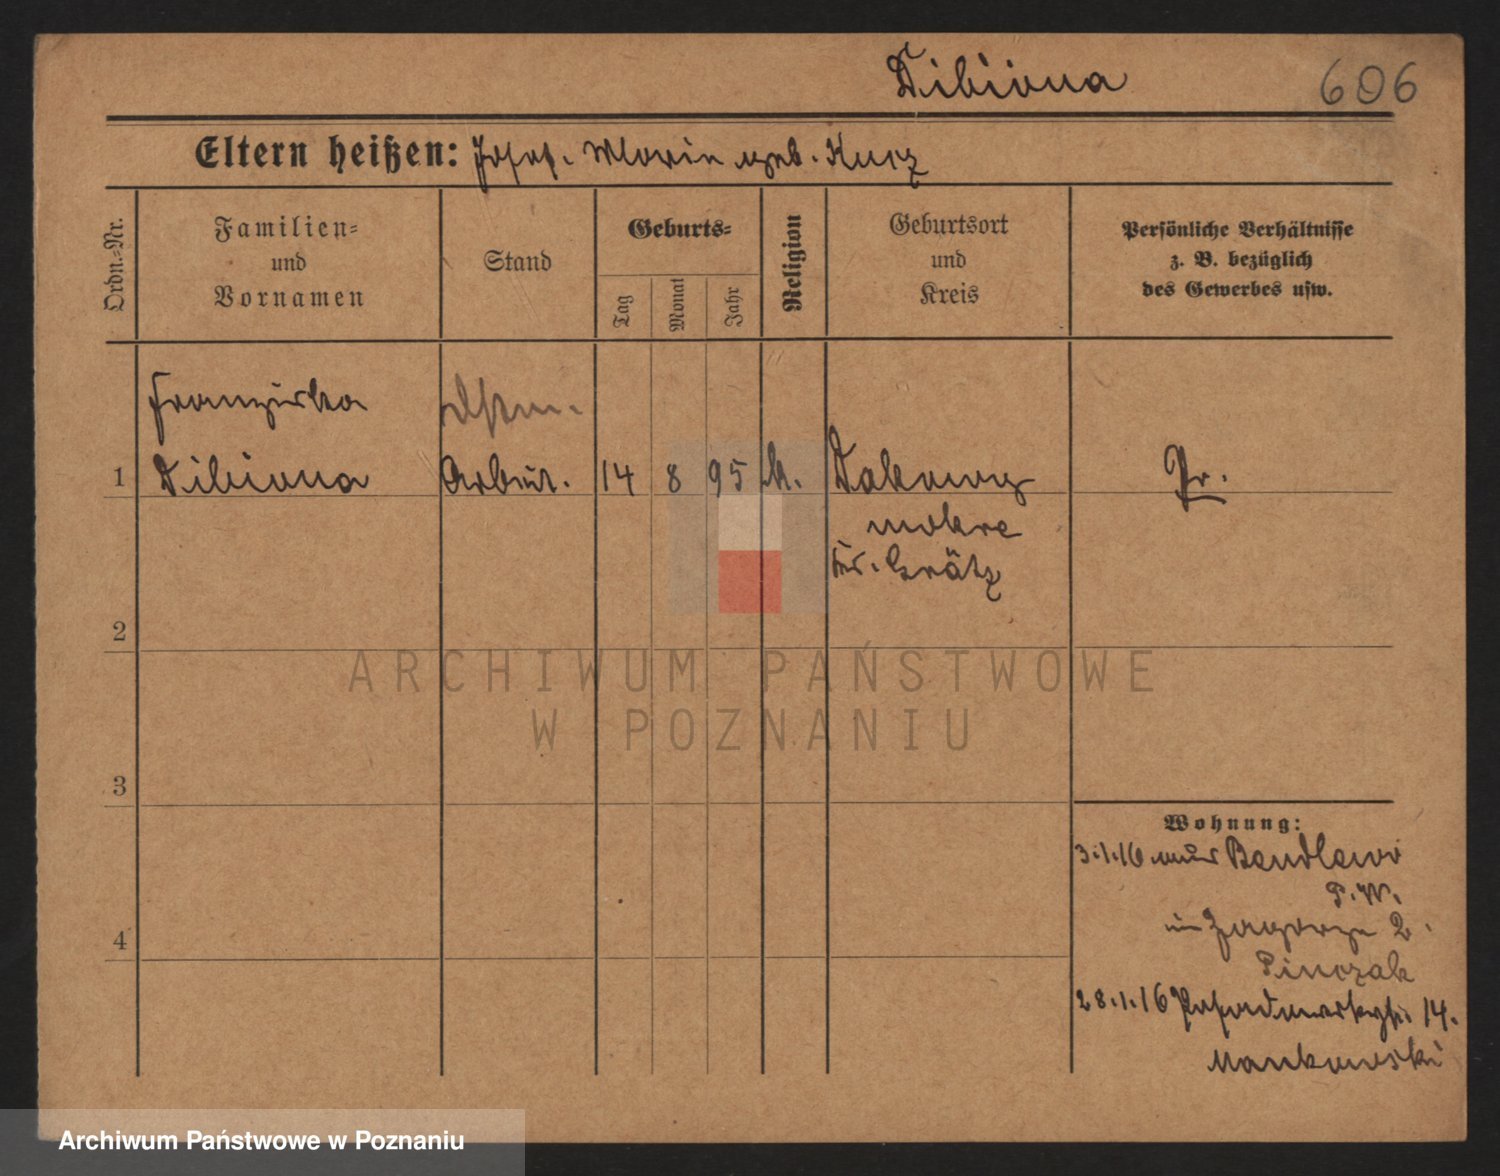 Dibiona
606
Eltern heißen: Josef. Marie geb. Kurz
Ordn.-Nr.
Familien-
und
Vornamen
Stand
Geburts-
Tag
Monat
Jahr
Religion
Geburtsort
und
Kreis
Persönliche Verhältnisse
z. B. bezüglich
des Gewerbes usw.
Franziska
1 Dibiona Arbeit. 14 8 95 k. Dakowy Pr.
mokre
Kr. Grätz
2
ARCHIWUM PAŃSTWOWE
W POZNANIU
3
Wohnung:
3.1.16 aus Bendlewo
P. W.
in Zagorze 2.
Pinczak
4
28.1.16 14.
Mankowski
Archiwum Państwowe w Poznaniu